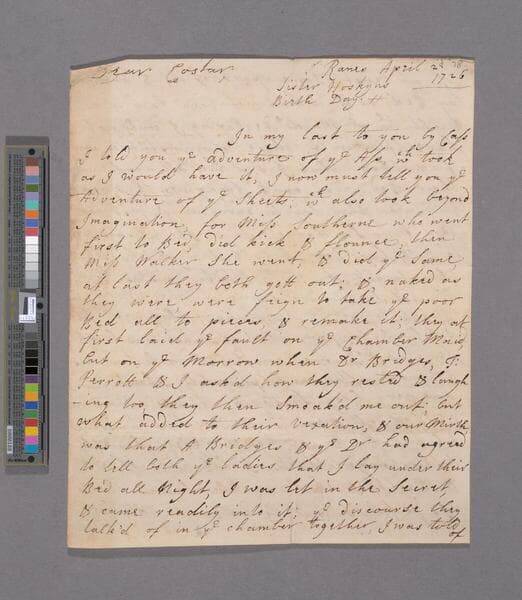 Dear Costar,
Ranes April 2d 28
1726
Sister Hoskyns
Birth Day.
In my last to you by Cass
I told you ye adventure of ye Ass, wch took
as I would have it, I now must tell you ye
Adventure of ye Sheets, wch also took beyond
Imagination, for Miss Southerne who went
first to Bed, did kick & flounce, then
Miss Walker She went, & did ye same,
at last they both gott out; &, naked as
they were were feign to take ye poor
Bed all to pieces & remake it; they at
first laid ye fault on ye Chamber Maid
but on ye Morrow when Dr Bridges, T:
Perrott & I ask'd how they rested & laugh
-ing too, they then Smoak'd me out; but
what added to their vexation, & our Mirth
was that A Bridges & ye Dr had agreed
to tell both ye ladies that I lay under their
Bed all Night, I was let in the Secret,
& came readily into it; ye discourse they
talk'd of in ye chamber together, I was told
of